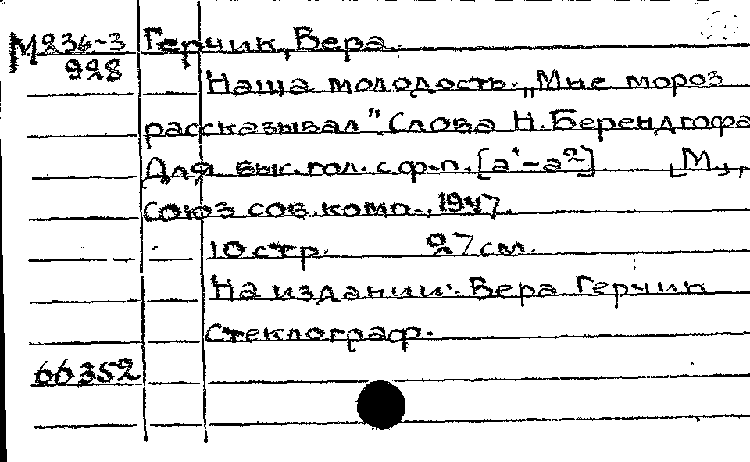 М236-3 Герчик, Вера.
928
Наша молодость. „Мне мороз
рассказывал" Слова Н. Берендгофа
Для выс. гол. с ф-п. [а¹-а²] [М.],
Союз сов. комп., 1947.
10 стр. 27 см.
На издании: Вера Герчик
Стеклограф.
66352